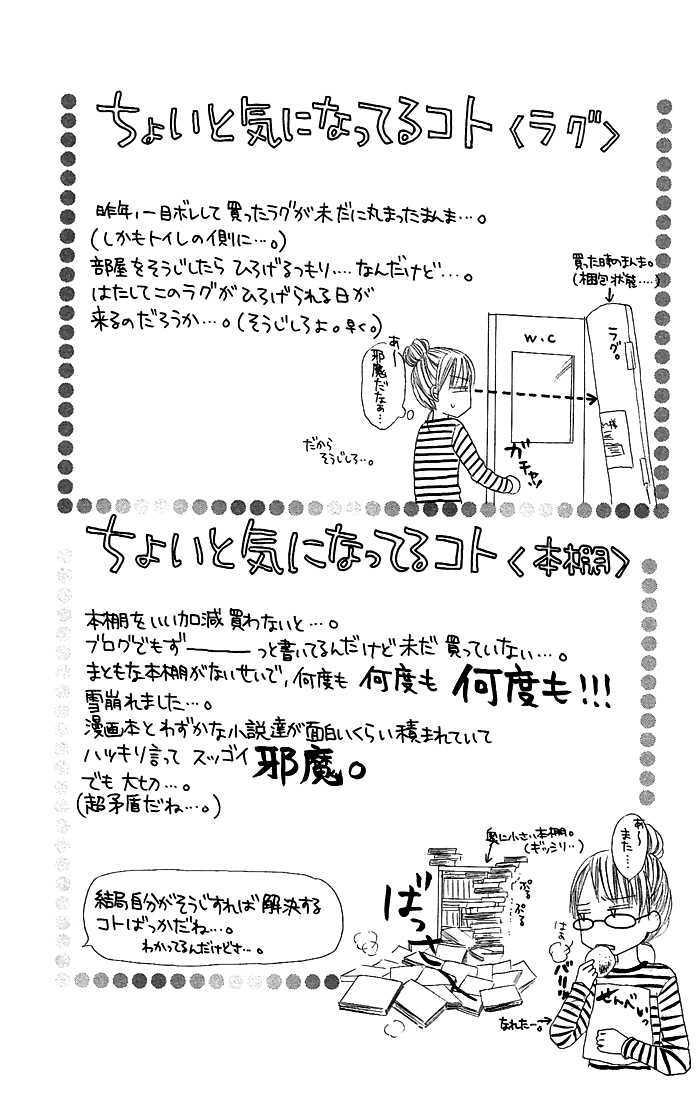 ちょいと気になってるコト〈ラグ〉
昨年、一目ボレして買ったラグが未だに丸まったまんま…。
(しかもトイレの側に…。)
部屋をそうじしたら ひろげるつもり…. なんだけど…。
はたしてこのラグがひろげられる日が
来るのだろうか…。(そうじしろよ。早く。)
買った時のまんま。
(梱包状態….)
W.C
ラグ。
あ〜
邪魔だなぁ…
ガチャッ!
だから
そうじしろ…。
ちょいと気になってるコト〈本棚〉
本棚をいい加減 買わないと…。
ブログでもず―――っと書いてるんだけど未だ 買っていない…。
まともな本棚がないせいで、何度も 何度も 何度も!!!
雪崩れました…。
漫画本とわずかな小説達が面白いくらい積まれていて
ハッキリ言って スッゴイ 邪魔。
でも 大切…。
(超矛盾だね…。)
奥に小さい本棚。
(ギッシリ…)
あ〜
また…
ぷる
ぷる
ばっさー
はぁ
バリッ
せんべいっ
なれたー。
結局自分がそうじすれば解決する
コトばっかだね…。
わかってるんだけどさ…。